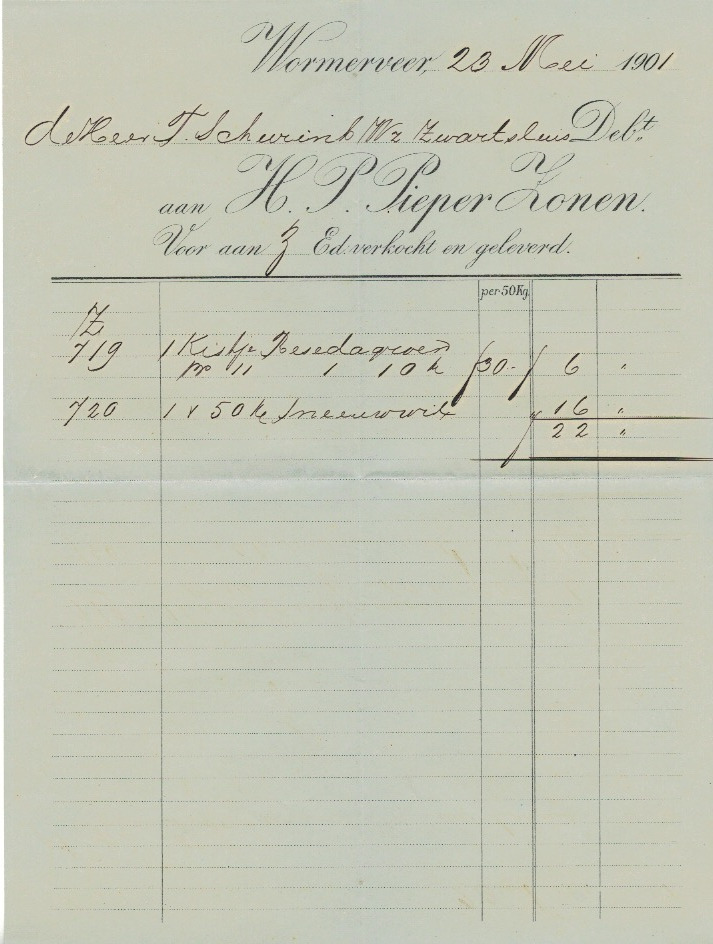 Wormerveer, 23 Mei 1901
de Heer T. Schurink Wz Zwartsluis Debt.
aan H. P. Pieper Zonen.
Voor aan Z Ed. verkocht en geleverd.
per 50 Kg.
Z
719 1 Kistje Resedagroen
11 1 10 k 30.- 6 "
720 1 v 50 k Sneeuwwit " 16 "
22 "